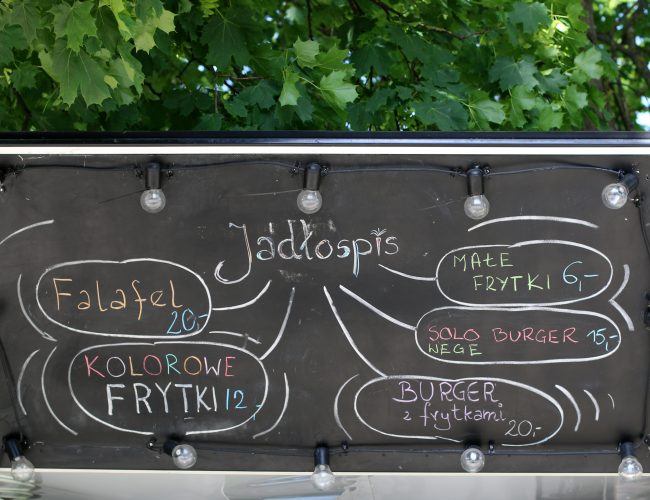 Jadłospis
Falafel
20,-
KOLOROWE
FRYTKI 12,-
MAŁE
FRYTKI 6,-
SOLO BURGER 15,-
WEGE
BURGER
z frytkami
20,-